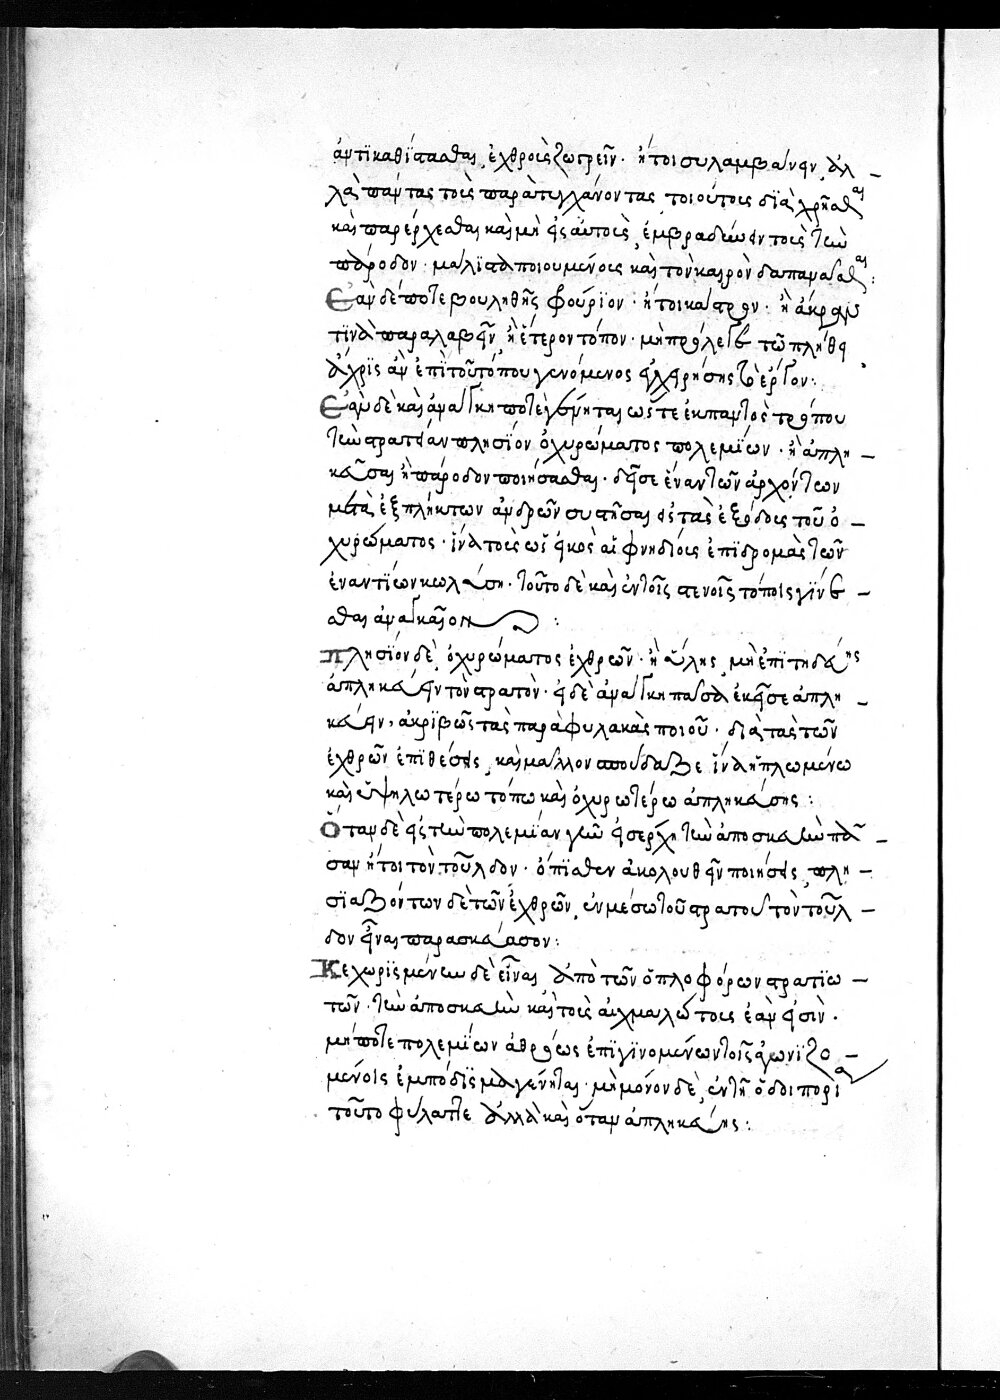 ἀντικαθίστασθαι, ἐχθροὺς ζωγρεῖν· ἤτοι συλαμβάνειν, ἀλ –
λὰ πάντας τοὺς παρατυγχάνοντας τοιούτοις διαχρῆσθαι
καὶ παρέρχεσθαι καὶ μὴ εἰς αὐτοὺς ἐμβραδύνειν τοὺς τὴν
πάροδον μάλιστα ποιουμένους καὶ τὸν καιρὸν δαπανᾶσθαι:
Ἐὰν δέ ποτε βουληθῇς φούριον· ἤτοι κάστρον· ἢ ἄκραν
τινὰ παραλαβεῖν, ἢ ἕτερον τόπον· μὴ προλέγειν τῷ πλήθει
ἄχρις ἂν ἐπὶ τοῦ τόπου γενόμενος ἐγχειρήσῃς τὸ ἔργον:
Ἐὰν δὲ καὶ ἀνάγκη ποτὲ γένηται ὥστε ἐκ παντὸς τρόπου
τὴν στρατείαν πλησίον ὀχυρώματος πολεμίων· ἢ ἀπλη –
κεῦσαι ἢ πάροδον ποιήσασθαι· δεῖ σε ἕνα τῶν ἀρχόντων
μετὰ ἐξπλήκτων ἀνδρῶν συστῆσαι εἰς τὰς ἐξόδους τοῦ ὀ –
χυρώματος· ἵνα τοὺς ὡς εἰκὸς αἰφνηδίους ἐπιδρομὰς τῶν
ἐναντίων κωλύσῃ· τοῦτο δὲ καὶ ἐν τοῖς στενοῖς τόποις γίνε –
σθαι ἀναγκαῖον :
Πλησίον δὲ ὀχυρώματος ἐχθρῶν· ἢ ὕλης, μὴ ἐπιτηδεύῃς
ἀπληκεύειν τὸν στρατόν· εἰ δὲ ἀνάγκη πᾶσα ἐκεῖσε ἀπλη –
κεύειν, ἀκριβῶς τὰς παραφυλακὰς ποιοῦ· διὰ τὰς τῶν
ἐχθρῶν ἐπιθέσεις, καὶ μᾶλλον σπούδαζε ἵνα ἡπλωμένω
καὶ ὑψηλωτέρω τόπω καὶ ὀχυρωτέρω ἀπληκεύσῃς :
Ὅταν δὲ εἰς τὴν πολεμίαν γῆν εἰσέρχῃ τὴν ἀποσκευὴν πᾶ –
σαν ἤτοι τὸν τοῦλδον· ὄπισθεν ἀκολουθεῖν ποιήσεις, πλη –
σιαζόντων δὲ τῶν ἐχθρῶν, ἐν μέσω τοῦ στρατοῦ τὸν τοῦλ –
δον εἶναι παρασκεύασον:
Κεχωρισμένην δὲ εἶναι ἀπὸ τῶν ὁπλοφόρων στρατιω –
τῶν· τὴν ἀποσκευὴν καὶ τοὺς αἰχμαλώτους ἐὰν εἰσίν·
μήποτε πολεμίων ἀθρόως ἐπιγινομένων τοῖς ἀγωνιζο –
μένοις ἐμπόδισμα γένηται· μὴ μόνον δὲ, ἐν τῇ ὁδοιπορία
τοῦτο φύλαττε ἀλλὰ καὶ ὅταν ἀπληκεύῃς :